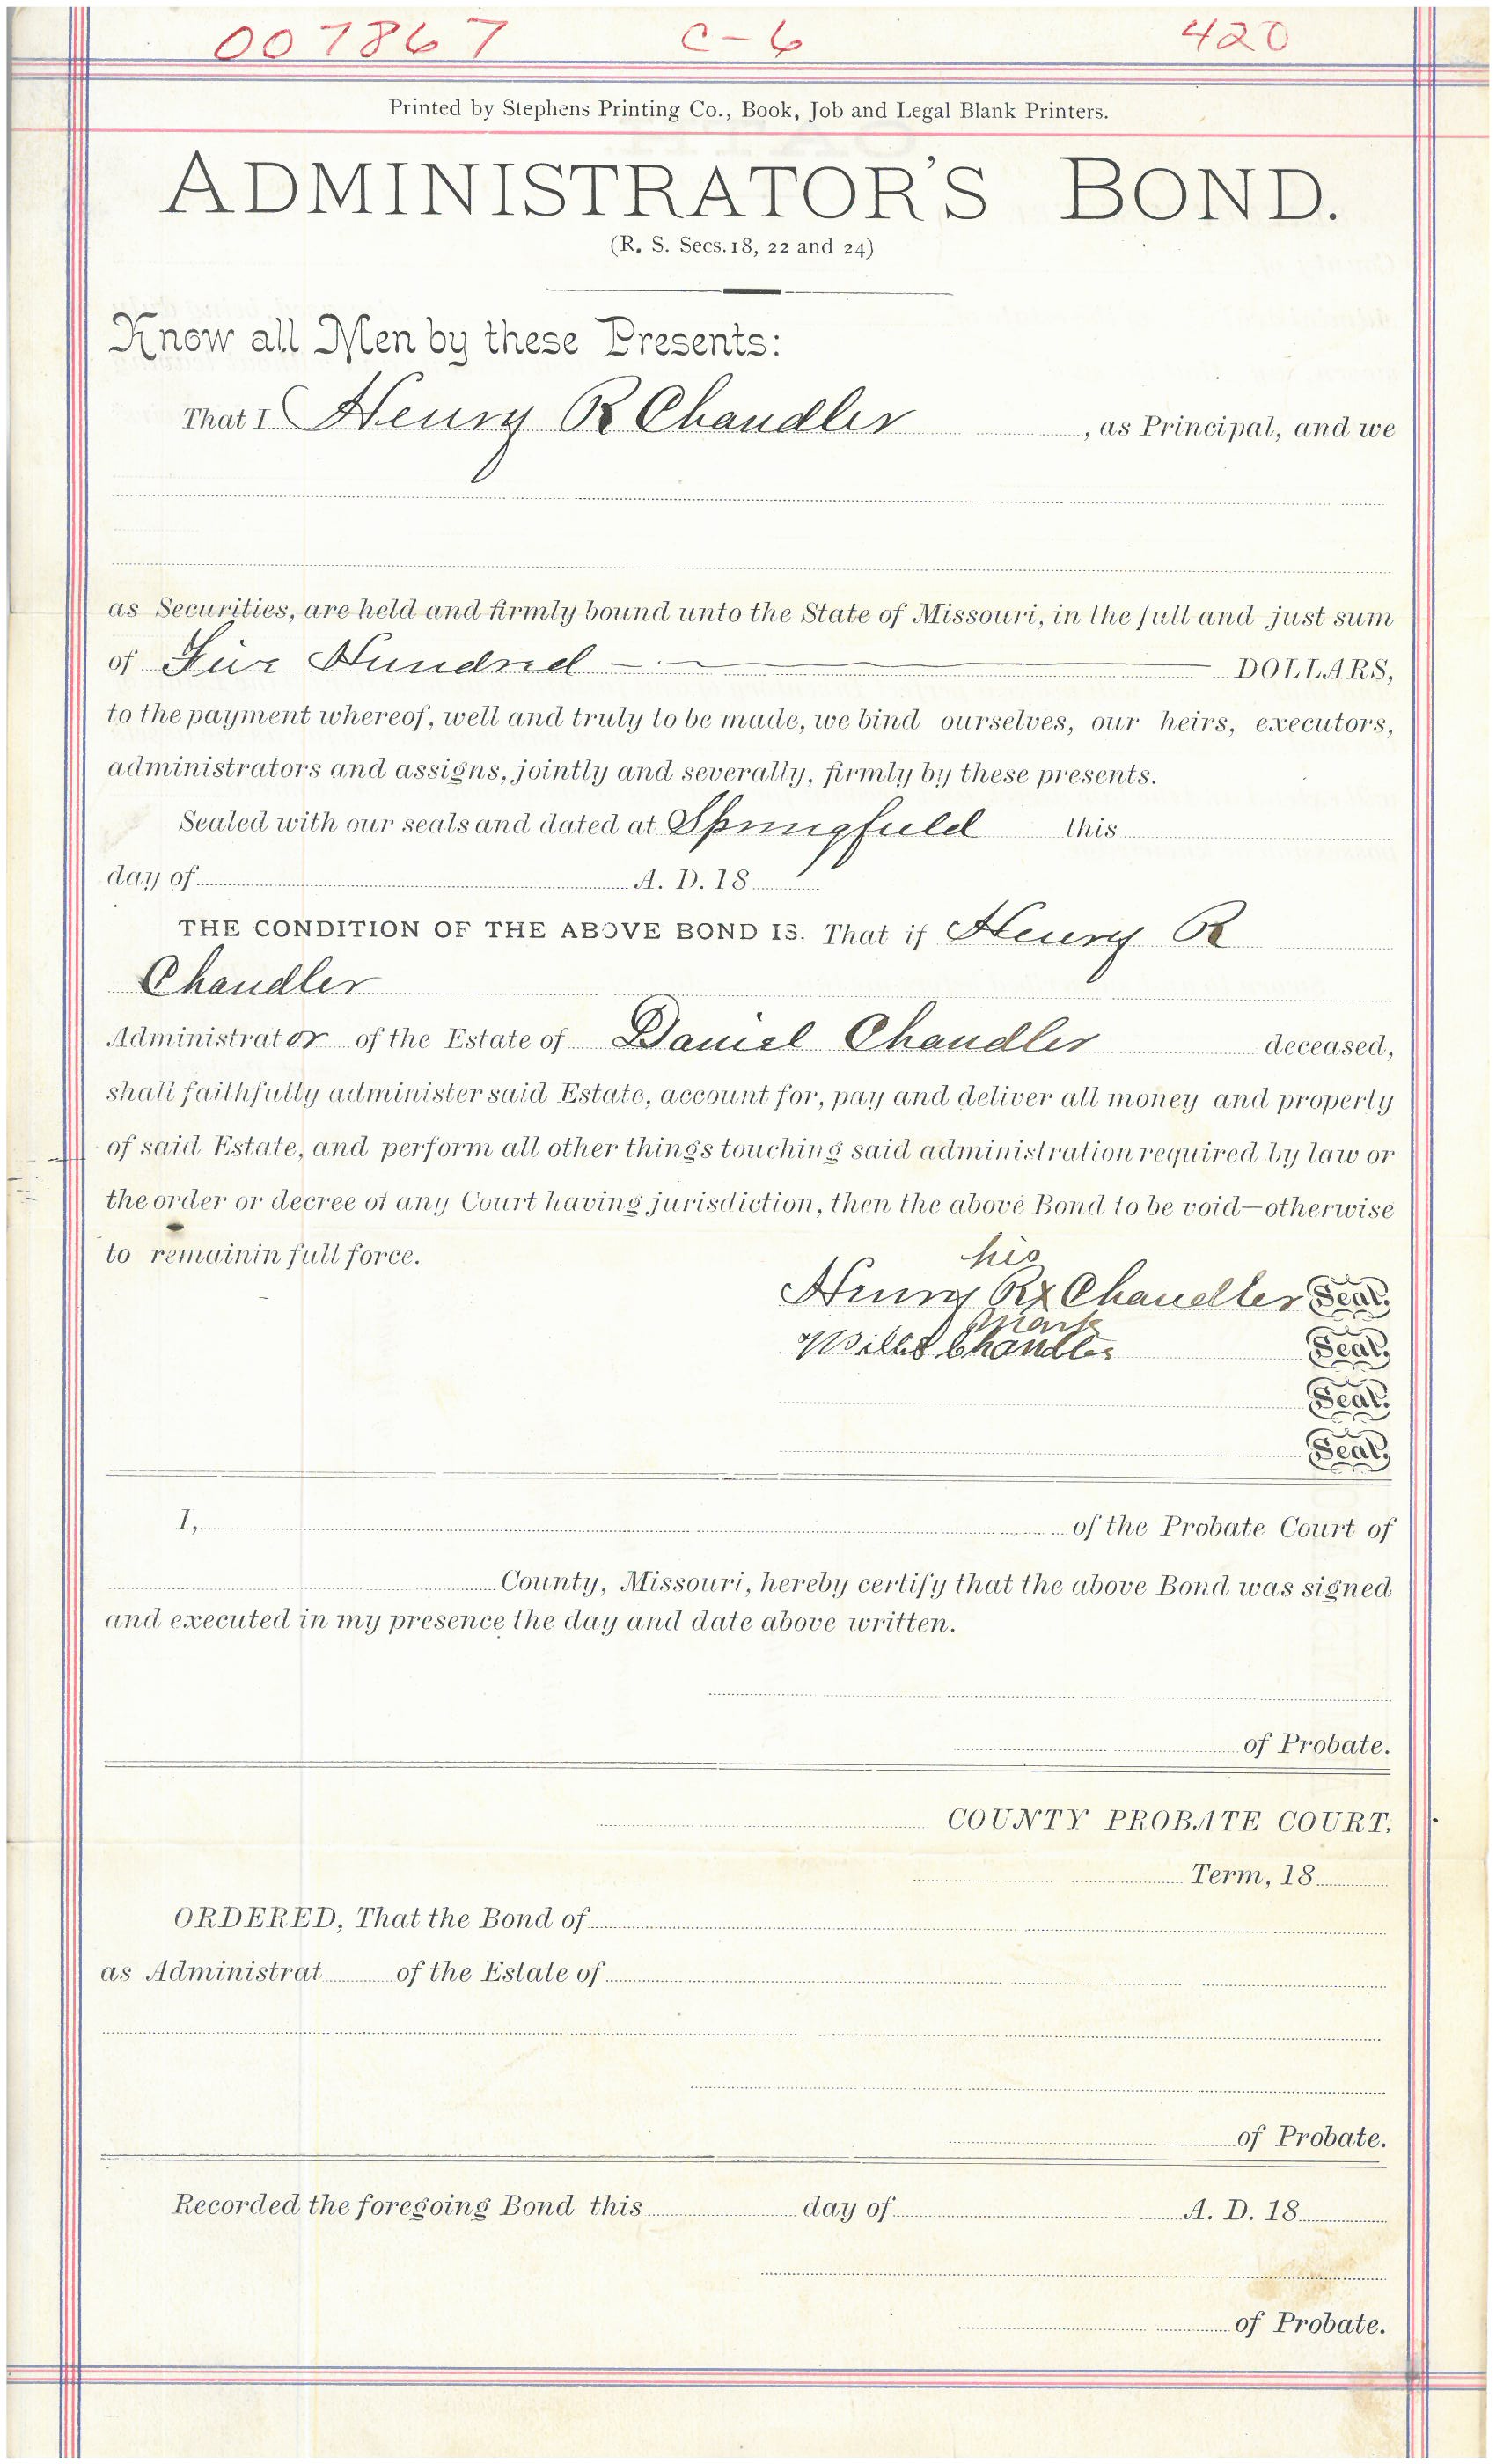 007867 C-6 420
Printed by Stephens Printing Co., Book, Job and Legal Blank Printers.
ADMINISTRATOR'S BOND.
(R. S. Secs. 18, 22 and 24)
Know all Men by these Presents:
That I Henry R Chandler , as Principal, and we
as Securities, are held and firmly bound unto the State of Missouri, in the full and just sum
of Five Hundred DOLLARS,
to the payment whereof, well and truly to be made, we bind ourselves, our heirs, executors,
administrators and assigns, jointly and severally, firmly by these presents.
Sealed with our seals and dated at Springfield this
day of A. D. 18
THE CONDITION OF THE ABOVE BOND IS, That if Henry R
Chandler
Administrator of the Estate of Daniel Chandler deceased,
shall faithfully administer said Estate, account for, pay and deliver all money and property
of said Estate, and perform all other things touching said administration required by law or
the order or decree of any Court having jurisdiction, then the above Bond to be void—otherwise
to remainin full force.
his
Henry R x Chandler Seal.
mark
Chandler Seal.
Seal.
Seal.
I, of the Probate Court of
County, Missouri, hereby certify that the above Bond was signed
and executed in my presence the day and date above written.
of Probate.
COUNTY PROBATE COURT,
Term, 18
ORDERED, That the Bond of
as Administrat of the Estate of
of Probate.
Recorded the foregoing Bond this day of A. D. 18
of Probate.